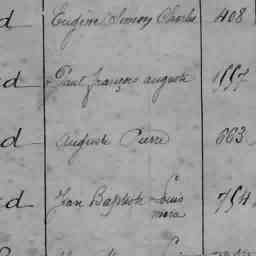 d Eugène Simon Charles 408
d Paul françois auguste 1557
d auguste Pierre 663
d Jean Baptiste Louis 754
mara